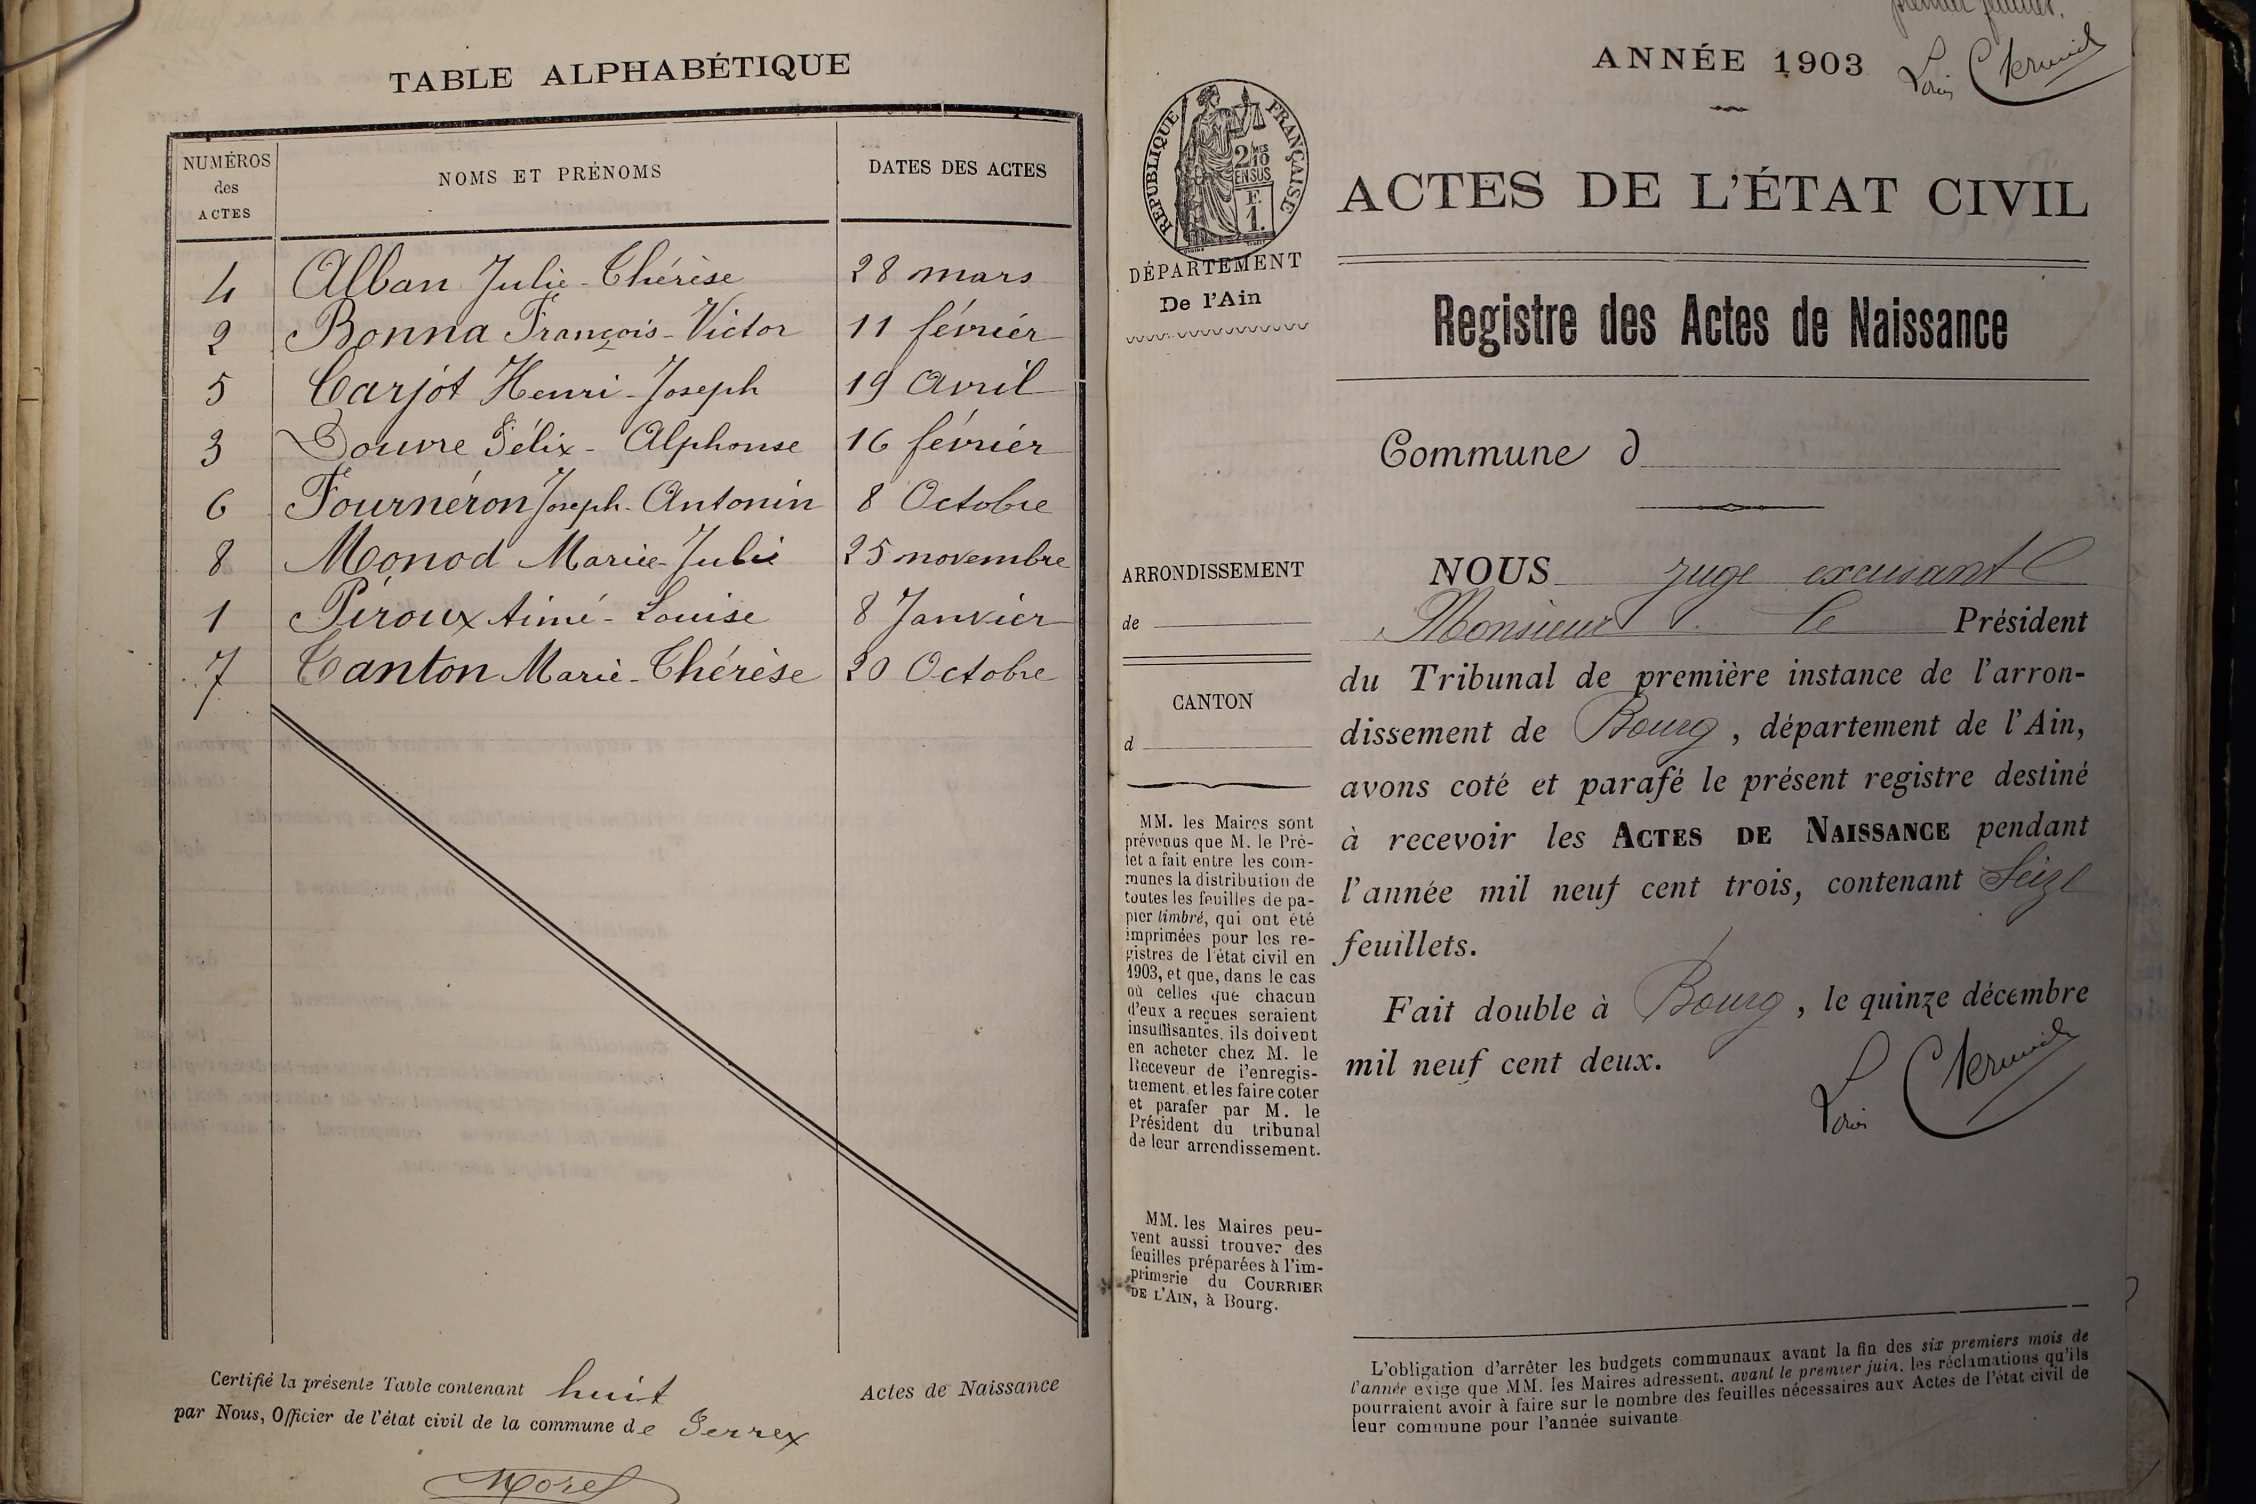 TABLE ALPHABÉTIQUE
NUMÉROS des ACTES
NOMS ET PRÉNOMS
DATES DES ACTES
4 Alban Julie-Thérèse 28 mars
2 Bonna François-Victor 11 février
5 Carjot Henri-Joseph 19 Avril
3 Douvre Félix-Alphonse 16 février
6 Fournéron Joseph-Antonin 8 Octobre
8 Monod Marie-Julie 25 novembre
1 Piroux Aimé-Louise 8 Janvier
7 Canton Marie-Thérèse 20 Octobre
Certifié la présente Table contenant huit Actes de Naissance
par Nous, Officier de l'état civil de la commune de Serrex
Morel
premier feuillet.
ANNÉE 1903
RÉPUBLIQUE FRANÇAISE
2 MES
10
EN SUS
F.
1.
DÉPARTEMENT
De l'Ain
ARRONDISSEMENT
de
CANTON
d
MM. les Maires sont
prévenus que M. le Pré-
fet a fait entre les com-
munes la distribution de
toutes les feuilles de pa-
pier timbré, qui ont été
imprimées pour les re-
gistres de l'état civil en
1903, et que, dans le cas
où celles que chacun
d'eux a reçues seraient
insuffisantes, ils doivent
en acheter chez M. le
Receveur de l'enregis-
trement, et les faire coter
et parafer par M. le
Président du tribunal
de leur arrondissement.
MM. les Maires peu-
vent aussi trouver des
feuilles préparées à l'im-
primerie du COURRIER
DE L'AIN, à Bourg.
ACTES DE L'ÉTAT CIVIL
Registre des Actes de Naissance
Commune d
NOUS juge excusant
Monsieur le Président
du Tribunal de première instance de l'arron-
dissement de Bourg, département de l'Ain,
avons coté et parafé le présent registre destiné
à recevoir les ACTES DE NAISSANCE pendant
l'année mil neuf cent trois, contenant Seize
feuillets.
Fait double à Bourg, le quinze décembre
mil neuf cent deux.
L'obligation d'arrêter les budgets communaux avant la fin des six premiers mois de
l'année exige que MM. les Maires adressent, avant le premier juin, les réclamations qu'ils
pourraient avoir à faire sur le nombre des feuilles nécessaires aux Actes de l'état civil de
leur commune pour l'année suivante.